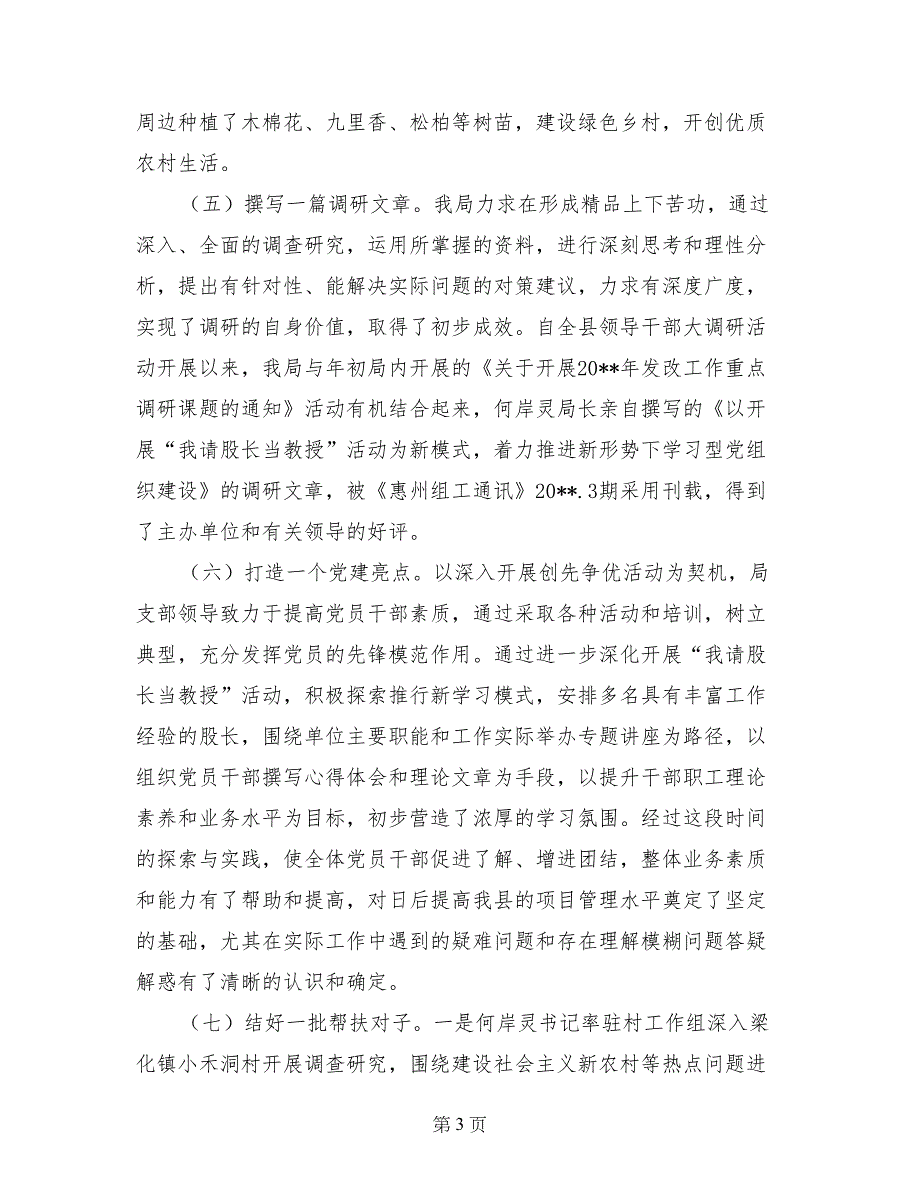 周边种植了木棉花、九里香、松柏等树苗，建设绿色乡村，开创优质
农村生活。
（五）撰写一篇调研文章。我局力求在形成精品上下苦功，通过
深入、全面的调查研究，运用所掌握的资料，进行深刻思考和理性分
析，提出有针对性、能解决实际问题的对策建议，力求有深度广度，
实现了调研的自身价值，取得了初步成效。自全县领导干部大调研活
动开展以来，我局与年初局内开展的《关于开展20**年发改工作重点
调研课题的通知》活动有机结合起来，何岸灵局长亲自撰写的《以开
展“我请股长当教授”活动为新模式，着力推进新形势下学习型党组
织建设》的调研文章，被《惠州组工通讯》20**.3期采用刊载，得到
了主办单位和有关领导的好评。
（六）打造一个党建亮点。以深入开展创先争优活动为契机，局
支部领导致力于提高党员干部素质，通过采取各种活动和培训，树立
典型，充分发挥党员的先锋模范作用。通过进一步深化开展“我请股
长当教授”活动，积极探索推行新学习模式，安排多名具有丰富工作
经验的股长，围绕单位主要职能和工作实际举办专题讲座为路径，以
组织党员干部撰写心得体会和理论文章为手段，以提升干部职工理论
素养和业务水平为目标，初步营造了浓厚的学习氛围。经过这段时间
的探索与实践，使全体党员干部促进了解、增进团结，整体业务素质
和能力有了帮助和提高，对日后提高我县的项目管理水平奠定了坚定
的基础，尤其在实际工作中遇到的疑难问题和存在理解模糊问题答疑
解惑有了清晰的认识和确定。
（七）结好一批帮扶对子。一是何岸灵书记率驻村工作组深入梁
化镇小禾洞村开展调查研究，围绕建设社会主义新农村等热点问题进
第 3 页